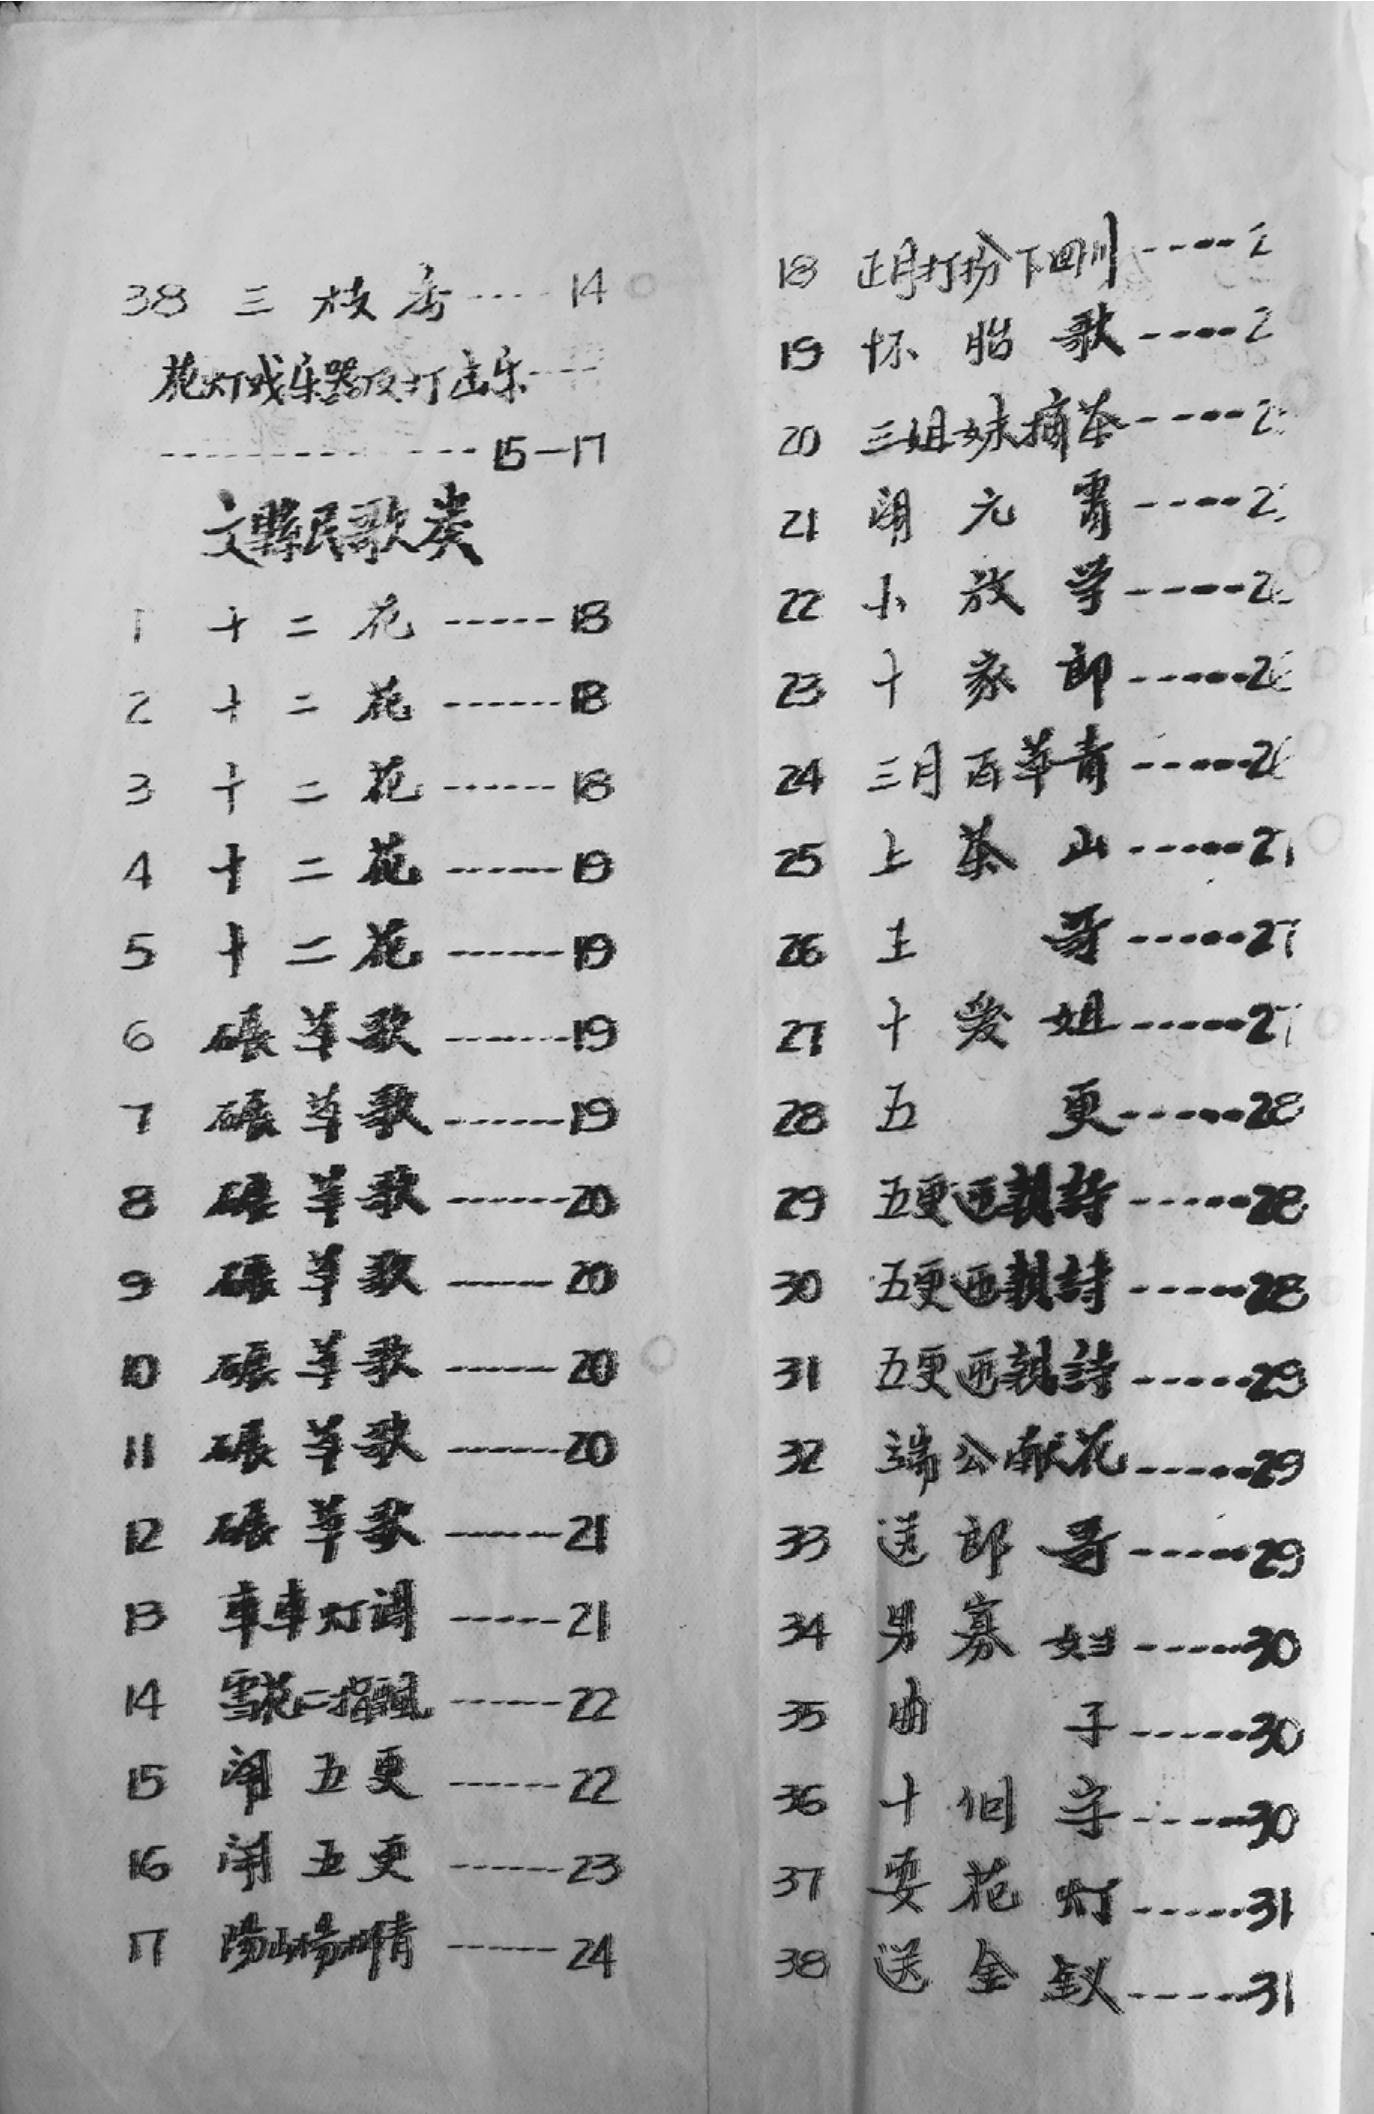 38 三枝香----14
花灯戏乐器及打击乐----
------------15—17
文縣民歌类
1 十二花-----18
2 十二花------18
3 十二花------18
4 十二花------19
5 十二花------19
6 碾草歌------19
7 碾草歌------19
8 碾草歌------20
9 碾草歌-----20
10 碾草歌-----20
11 碾草歌-----20
12 碾草歌-----21
13 車車灯调-----21
14 雪花二指
15 闹五更-----22
16 闹五更-----23
17 陽山楊柳青-----24
18 正月打扮下四川----2
19 怀胎歌----2
20 三姐妹摘茶----2
21 闹元宵----2
22 小放学-----2
23 十家郎-----2
24 三月百草青-----2
25 上茶山-----2
26 王哥-----27
27 十爱姐-----27
28 五更-----28
29 五更迊親詩-----28
30 五更迊親詩-----28
31 五更迊親詩-----29
32 端公献花-----29
33 送郎哥-----29
34 男寡妇-----30
35 曲子-----30
36 十個字-----30
37 耍花灯-----31
38 送金釵-----31